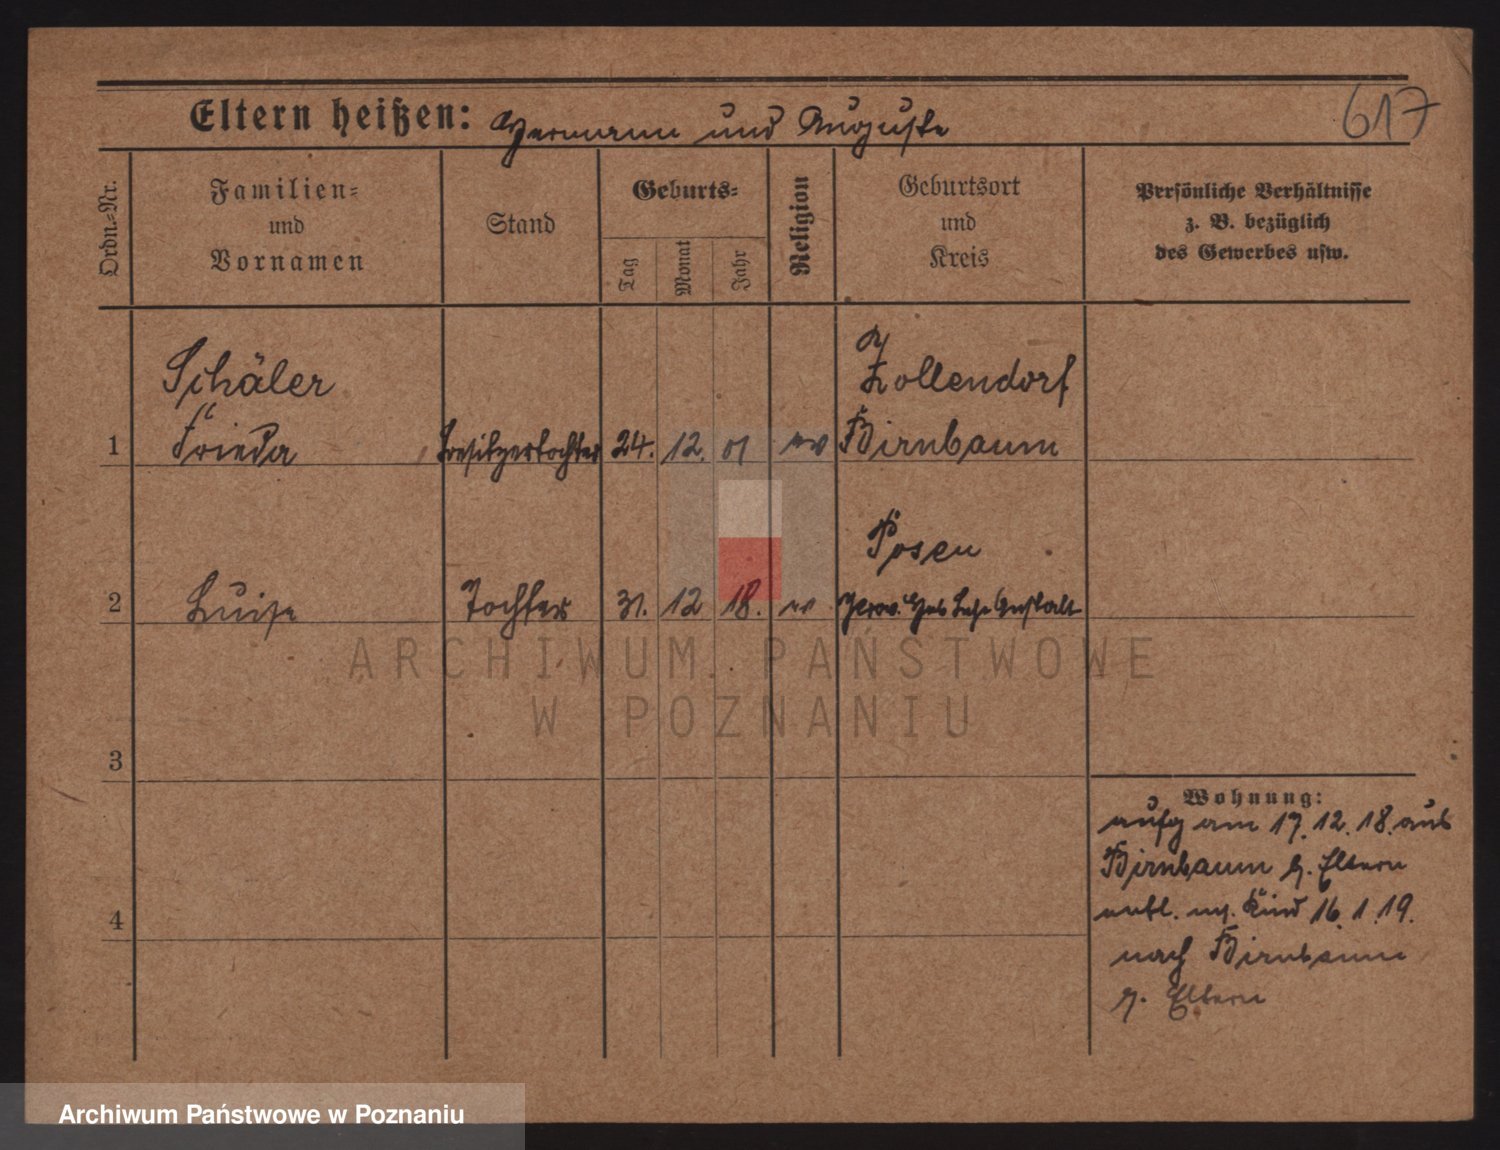 Eltern heißen: Hermann und Auguste
617
Ordn.-Nr.
Familien-
und
Vornamen
Stand
Geburts-
Tag
Monat
Jahr
Religion
Geburtsort
und
Kreis
Persönliche Verhältnisse
z. B. bezüglich
des Gewerbes usw.
Schäler
Zollendorf
1 Frieda Besitzertochter 24. 12. 01 ev Birnbaum
Posen
2 Luise Tochter 31. 12 18. ev Prov. Heb Lehr Anstalt
3
4
Wohnung:
aufg am 17. 12. 18. aus
Birnbaum z. Eltern
entl. m. Kind 16. 1. 19.
nach Birnbaum
z. Eltern
ARCHIWUM PAŃSTWOWE
W POZNANIU
Archiwum Państwowe w Poznaniu